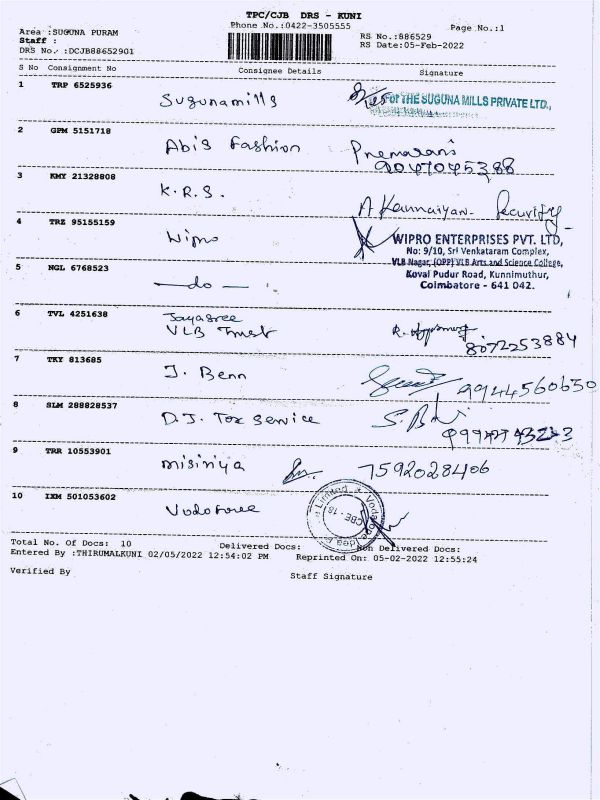 TPC/CJB DRS - KUNI
Phone No.:0422-3505555 Page No.:1
Area :SUGUNA PURAM
Staff : RS No.:886529
DRS No. :DCJB88652901 RS Date:05-Feb-2022
S No Consignment No Consignee Details Signature
1 TRP 6525936 Sugunamills For THE SUGUNA MILLS PRIVATE LTD.,
2 GPM 5151718 Abis Fashion Premarani
9047045388
3 KMY 21328808 K.R.S. A Kannaiyan. Security
4 TRZ 95155159 Wipro WIPRO ENTERPRISES PVT. LTD,
No: 9/10, Sri Venkataram Complex,
VLB Nagar, (OPP) VLB Arts and Science College,
Kovai Pudur Road, Kunnimuthur,
Coimbatore - 641 042.
5 NGL 6768523 - do -
6 TVL 4251638 Jayasree
VLB Trust 8072253884
7 TKY 813685 J. Benn 9944560650
8 SLM 288828537 D.J. Tax Service
9 TRR 10553901 misiriya 7592028406
10 IXM 501053602 Vodofone
Total No. Of Docs: 10 Delivered Docs: Non Delivered Docs:
Entered By :THIRUMALKUNI 02/05/2022 12:54:02 PM Reprinted On: 05-02-2022 12:55:24
Verified By Staff Signature